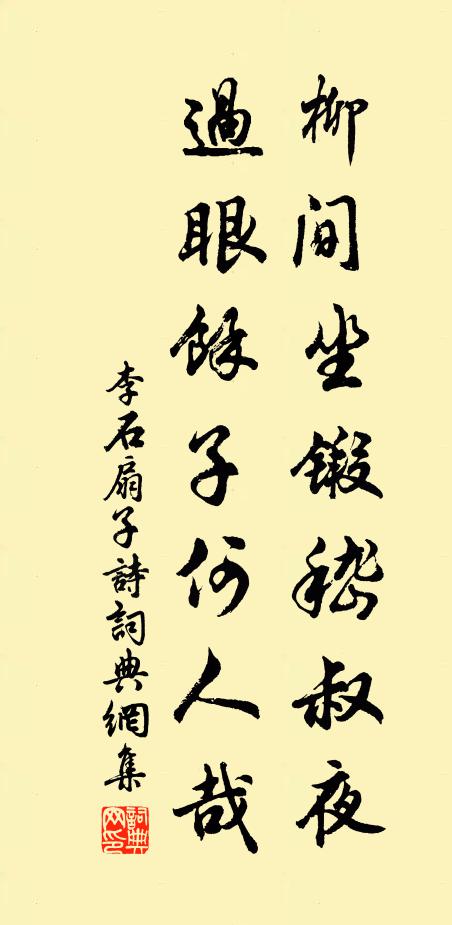 柳间坐鍛嵇叔夜
過眼餘子何人哉
李石扇子詩詞典網集
詞典網印